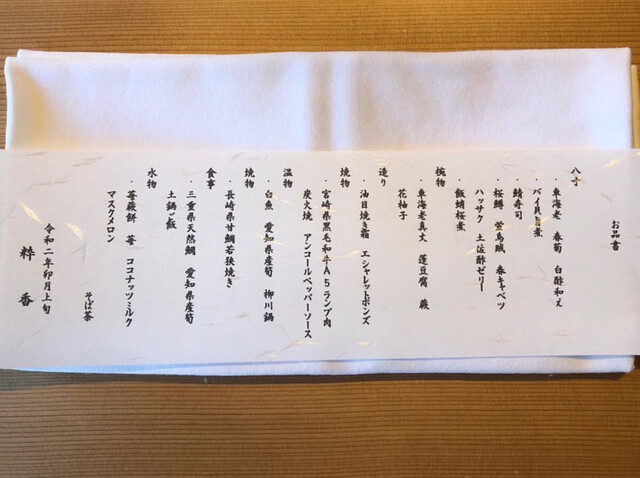 お品書
八寸
・車海老 春菊 白酢和え
・バイ貝旨煮
鯖寿司
・桜鱒 蛍烏賊 春キャベツ
ハッサク 土佐酢ゼリー
・飯蛸桜煮
椀物
・車海老真丈 蓬豆腐 蕨
花柚子
造り
・油目焼き霜 エシャレットポンズ
焼物
・宮崎県黒毛和牛A5ランプ肉
炭火焼 アンコールペッパーソース
温物
・白魚 愛知県産筍 柳川鍋
焼物
・長崎県甘鯛若狭焼き
食事
・三重県天然鯛 愛知県産筍
土鍋ご飯
水物
・苺蕨餅 苺 ココナッツミルク
マスクメロン
そば茶
令和二年卯月上旬
粋香